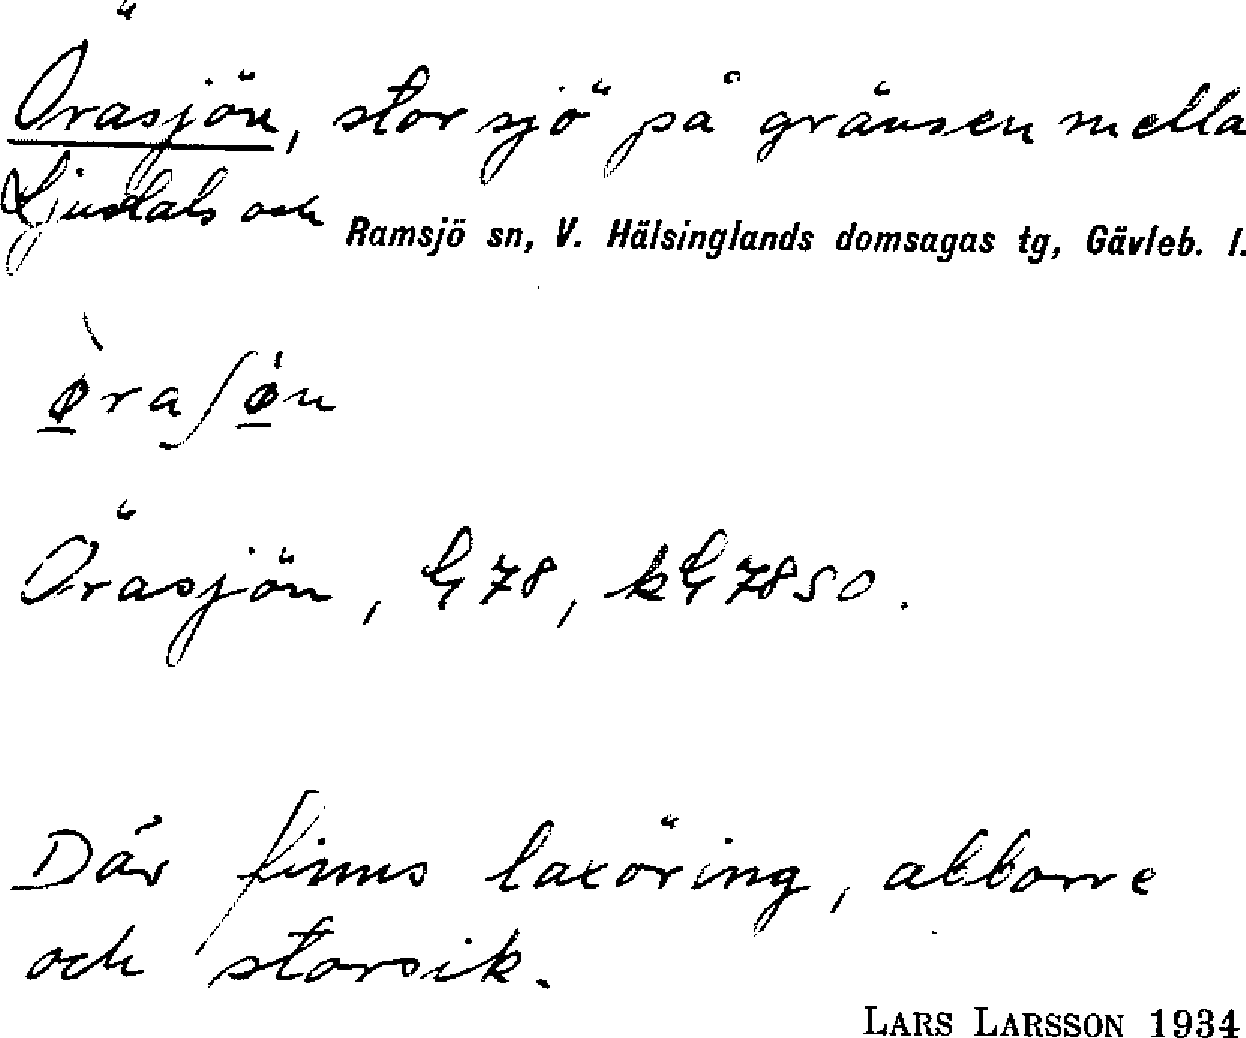 Örasjön, stor sjö på gränsen mella
Ljusdals och Ramsjö sn, V. Hälsinglands domsagas tg, Gävleb. l.
ø̱̀raʃǿ̱n
Örasjön, G 78, kG 7850.
Där finns laxöring, abborre
och storsik.
LARS LARSSON 1934